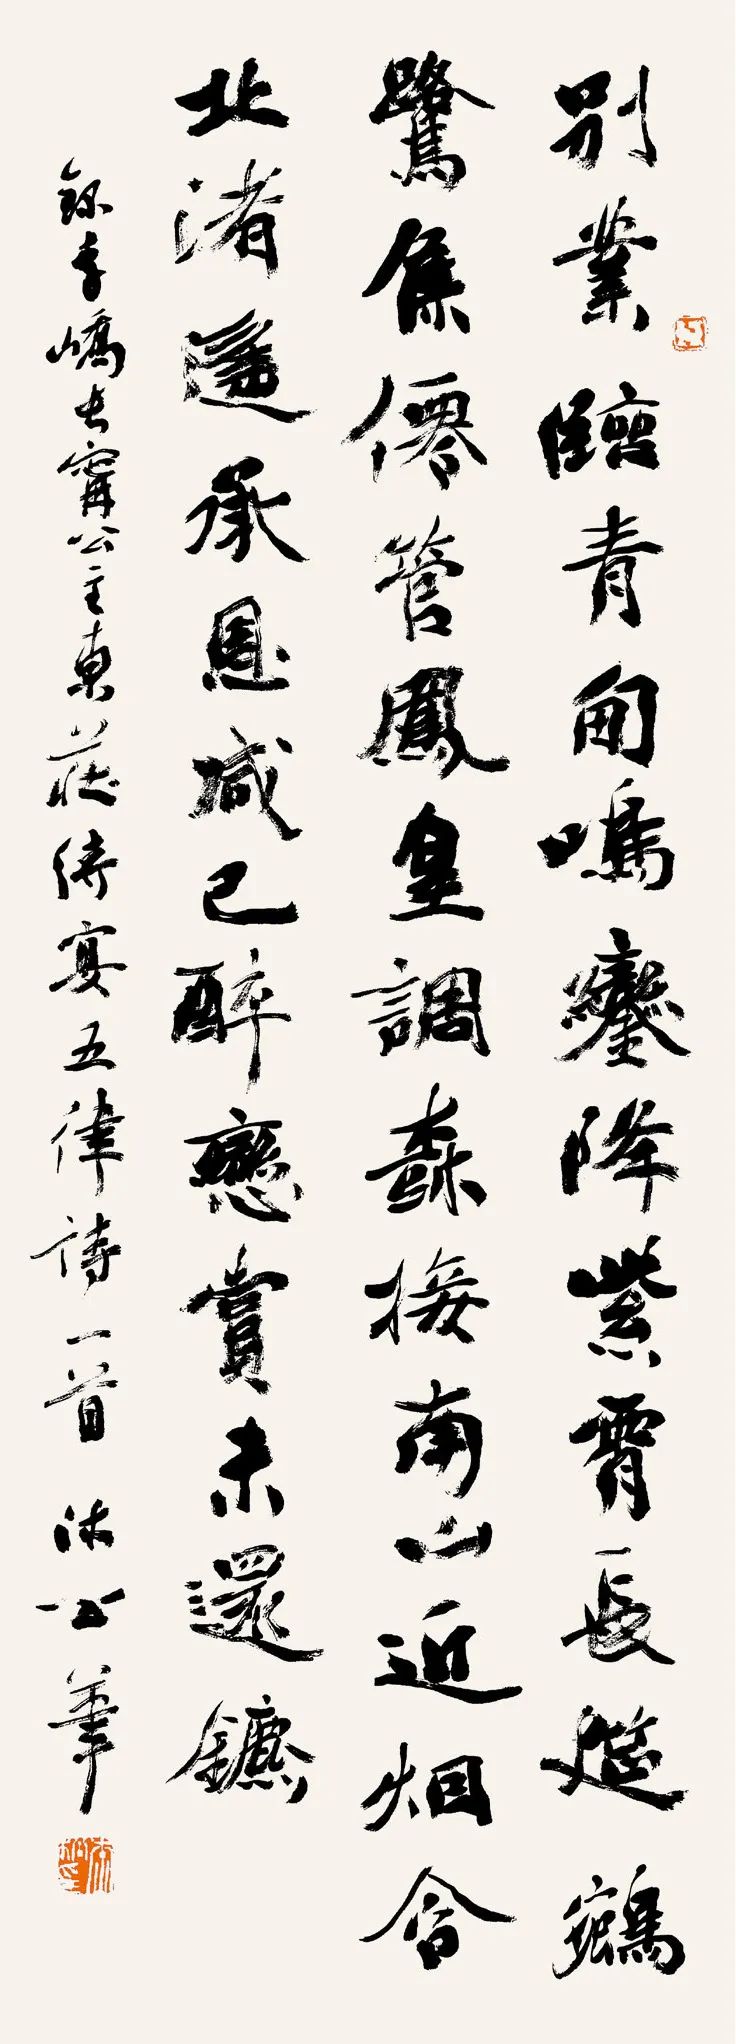 別業臨青甸鳴鑾降紫霄長筵鵷
鷺集僊管鳳皇調樹接南山近烟含
北渚遥承恩咸已醉戀賞未還鑣
錄李嶠長寧公主東莊侍宴五律詩一首 沐公筆